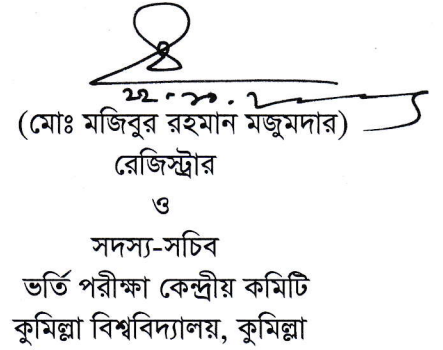 (মোঃ মজিবুর রহমান মজুমদার)
রেজিস্ট্রার
ও
সদস্য-সচিব
ভর্তি পরীক্ষা কেন্দ্রীয় কমিটি
কুমিল্লা বিশ্ববিদ্যালয়, কুমিল্লা